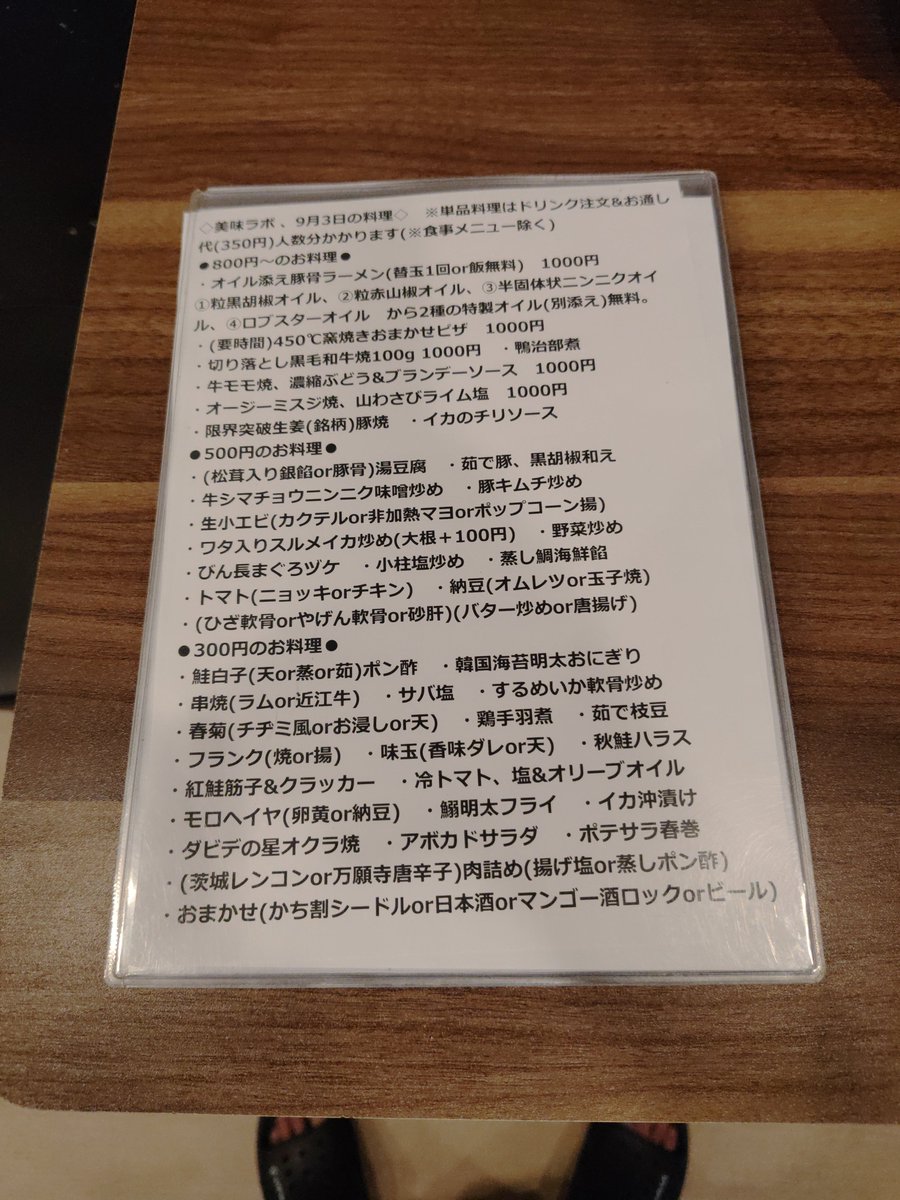 ◇美味ラボ 、9月3日の料理◇　※単品料理はドリンク注文&お通し
代(350円)人数分かかります(※食事メニュー除く)
●800円～のお料理●
・オイル添え豚骨ラーメン(替玉1回or飯無料)　1000円
①粒黒胡椒オイル、②粒赤山椒オイル、③半固体状ニンニクオイ
ル、④ロブスターオイル　から2種の特製オイル(別添え)無料。
・(要時間)450℃窯焼きおまかせピザ　1000円
・切り落とし黒毛和牛焼100g 1000円　・鴨治部煮
・牛モモ焼、濃縮ぶどう&ブランデーソース　1000円
・オージーミスジ焼、山わさびライム塩　1000円
・限界突破生姜(銘柄)豚焼　・イカのチリソース
●500円のお料理●
・(松茸入り銀餡or豚骨)湯豆腐　・茹で豚、黒胡椒和え
・牛シマチョウニンニク味噌炒め　・豚キムチ炒め
・生小エビ(カクテルor非加熱マヨorポップコーン揚)
・ワタ入りスルメイカ炒め(大根＋100円)　・野菜炒め
・びん長まぐろヅケ　・小柱塩炒め　・蒸し鯛海鮮餡
・トマト(ニョッキorチキン)　・納豆(オムレツor玉子焼)
・(ひざ軟骨orやげん軟骨or砂肝)(バター炒めor唐揚げ)
●300円のお料理●
・鮭白子(天or蒸or茹)ポン酢　・韓国海苔明太おにぎり
・串焼(ラムor近江牛)　・サバ塩　・するめいか軟骨炒め
・春菊(チヂミ風orお浸しor天)　・鶏手羽煮　・茹で枝豆
・フランク(焼or揚)　・味玉(香味ダレor天)　・秋鮭ハラス
・紅鮭筋子&クラッカー　・冷トマト、塩&オリーブオイル
・モロヘイヤ(卵黄or納豆)　・鰯明太フライ　・イカ沖漬け
・ダビデの星オクラ焼　・アボカドサラダ　・ポテサラ春巻
・(茨城レンコンor万願寺唐辛子)肉詰め(揚げ塩or蒸しポン酢)
・おまかせ(かち割シードルor日本酒orマンゴー酒ロックorビール)